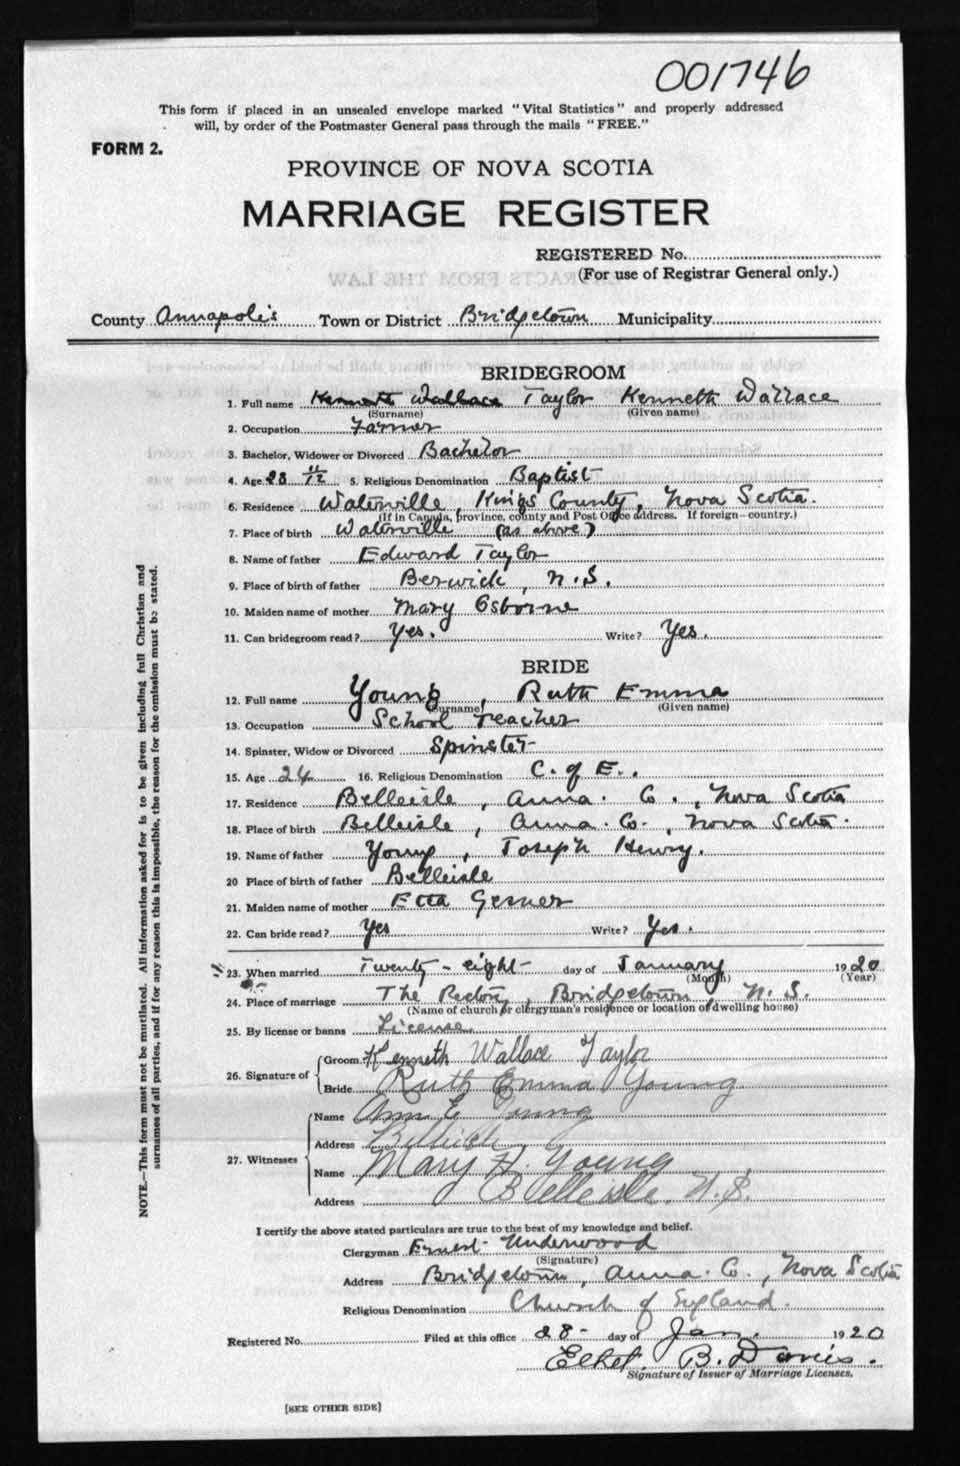 001746
This form if placed in an unsealed envelope marked "Vital Statistics" and properly addressed
will, by order of the Postmaster General pass through the mails "FREE."
FORM 2.
PROVINCE OF NOVA SCOTIA
MARRIAGE REGISTER
REGISTERED No.
(For use of Registrar General only.)
EXTRACTS FROM THE LAW
County Annapolis Town or District Bridgetown Municipality
BRIDEGROOM
1. Full name Kenneth Wallace Taylor Kenneth Wallace
(Surname) (Given name)
2. Occupation Farmer
3. Bachelor, Widower or Divorced Bachelor
4. Age 28 11/12 5. Religious Denomination Baptist
6. Residence Waterville, Kings County, Nova Scotia.
(If in Canada, province, county and Post Office address. If foreign—country.)
7. Place of birth Waterville (as above)
8. Name of father Edward Taylor
9. Place of birth of father Berwick, N.S.
10. Maiden name of mother Mary Osborne
11. Can bridegroom read? Yes. Write? Yes.
BRIDE
12. Full name Young, Ruth Emma
(Surname) (Given name)
13. Occupation School Teacher
14. Spinster, Widow or Divorced Spinster
15. Age 24 16. Religious Denomination C. of E.
17. Residence Belleisle, Anna. Co., Nova Scotia
18. Place of birth Belleisle, Anna. Co., Nova Scotia.
19. Name of father Young, Joseph Henry.
20 Place of birth of father Belleisle
21. Maiden name of mother Etta Gesner
22. Can bride read? Yes Write? Yes.
23. When married Twenty-eight day of January 1920
(Month) (Year)
24. Place of marriage The Rectory, Bridgetown, N.S.
(Name of church or clergyman's residence or location of dwelling house)
25. By license or banns License.
26. Signature of
Groom Kenneth Wallace Taylor
Bride Ruth Emma Young
27. Witnesses
Name Ann E Young
Address Belleisle
Name Mary H. Young
Address Belleisle, N.S.
I certify the above stated particulars are true to the best of my knowledge and belief.
Clergyman Ernest Underwood
(Signature)
Address Bridgetown, Anna. Co., Nova Scotia
Religious Denomination Church of England.
Registered No. Filed at this office 28- day of Jan. 1920
B. Davis.
Signature of Issuer of Marriage Licenses.
[SEE OTHER SIDE]
NOTE.—This form must not be mutilated. All information asked for is to be given including full Christian and
surnames of all parties, and if for any reason this is impossible, the reason for the omission must be stated.